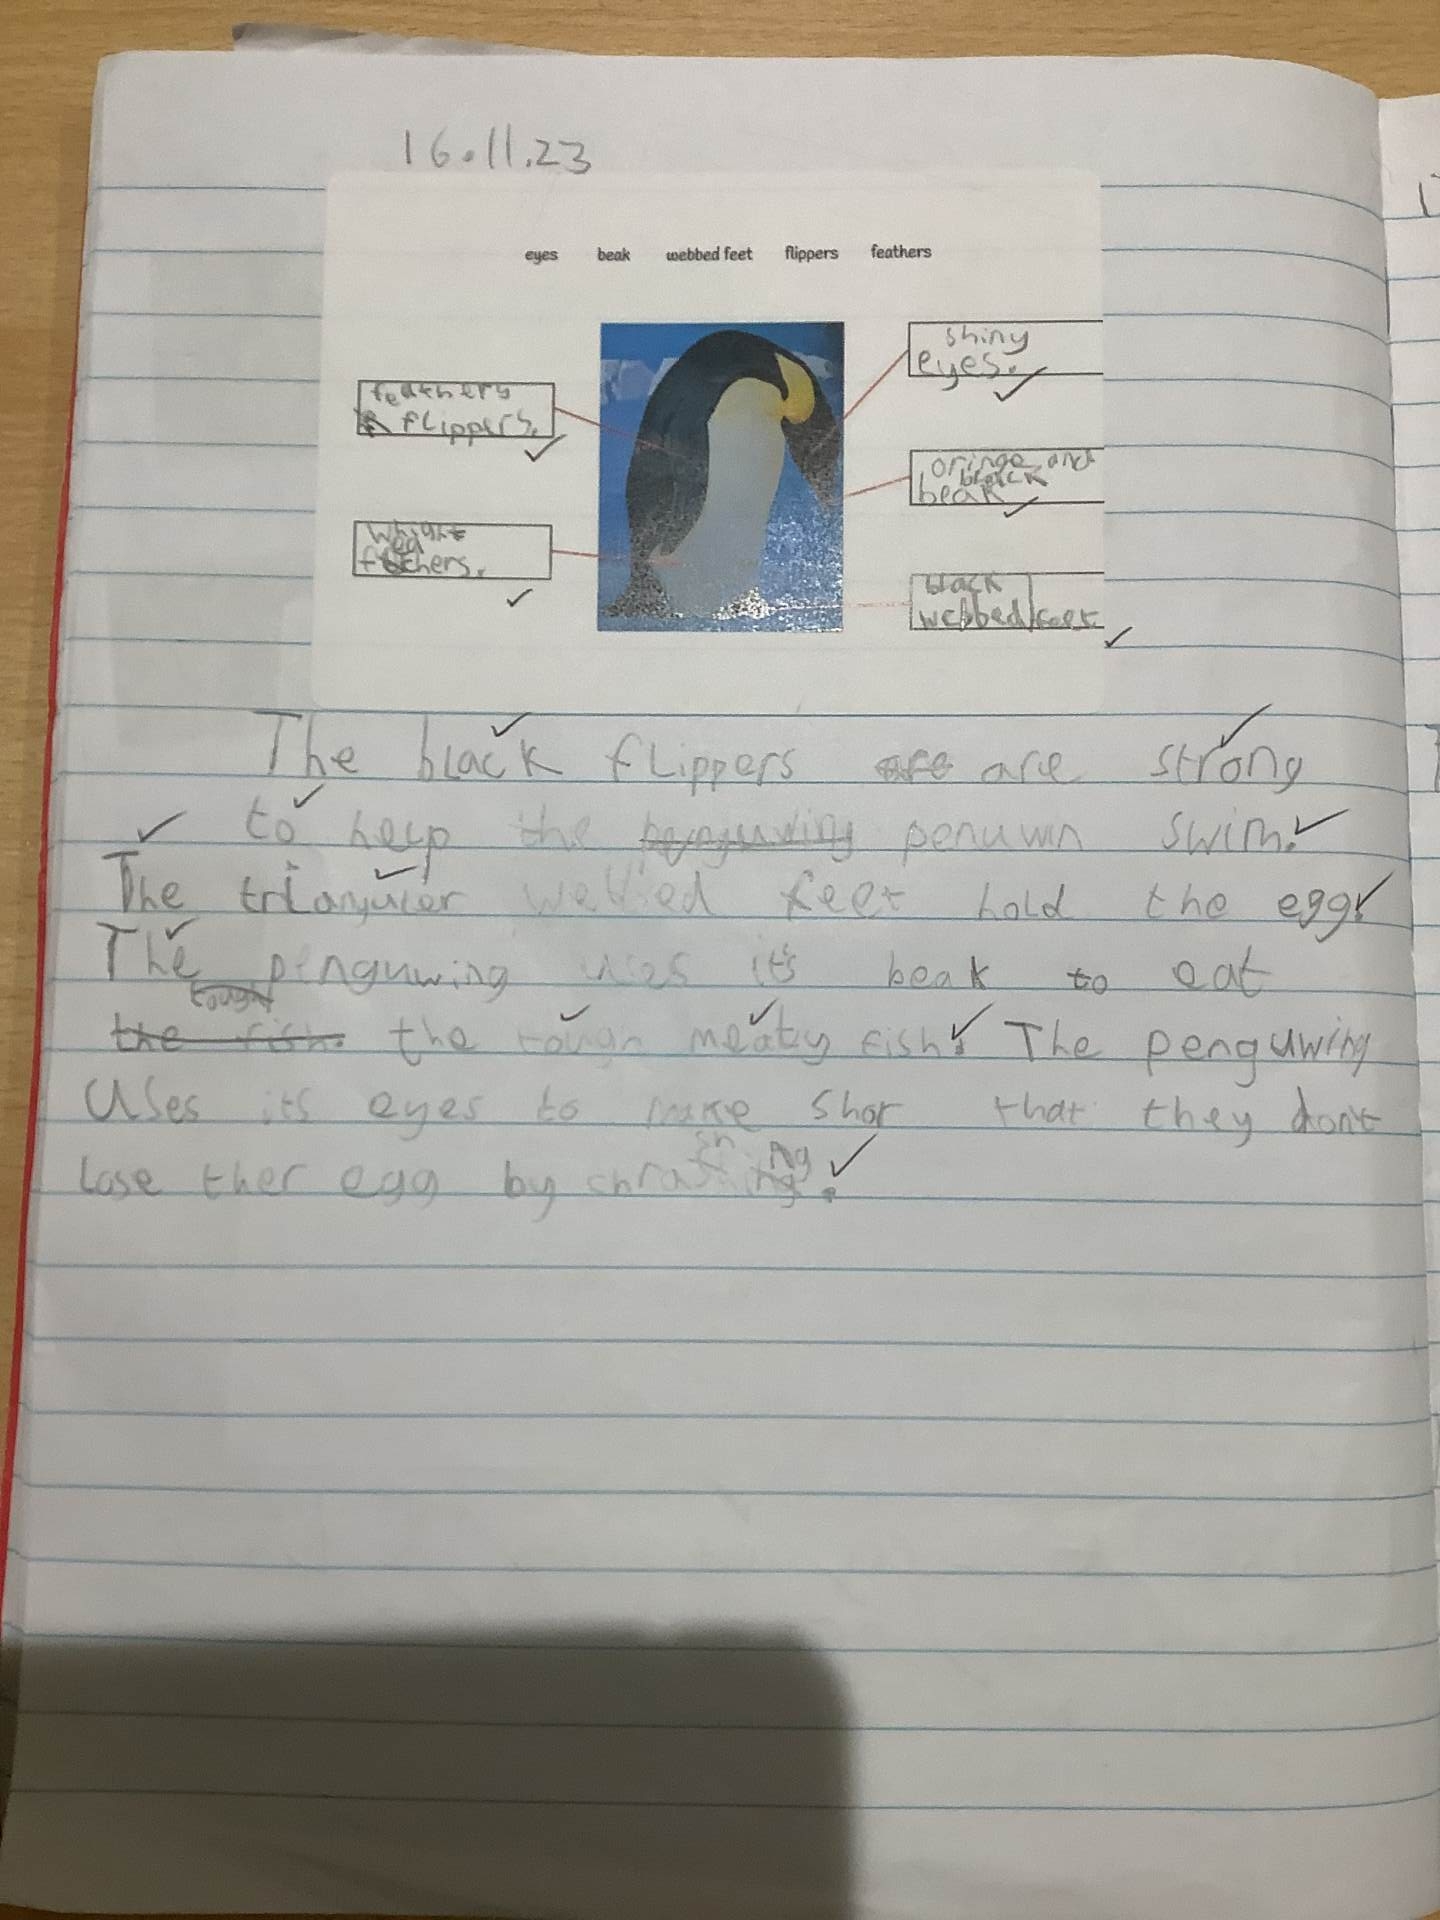 16.11.23
eyes beak webbed feet flippers feathers
shiny
eyes.
feathers
flippers.
oringe and
black
beak
whight
fethers.
black
webbed feet
The black flippers are are strong
to help the penguwing penuwin swim.
The trianguler webbed feet hold the egg.
The penguwing uses it's beak to eat
tough
the fish. the tough meaty fish. The penguwing
uses its eyes to make shor that they don't
lose ther egg by